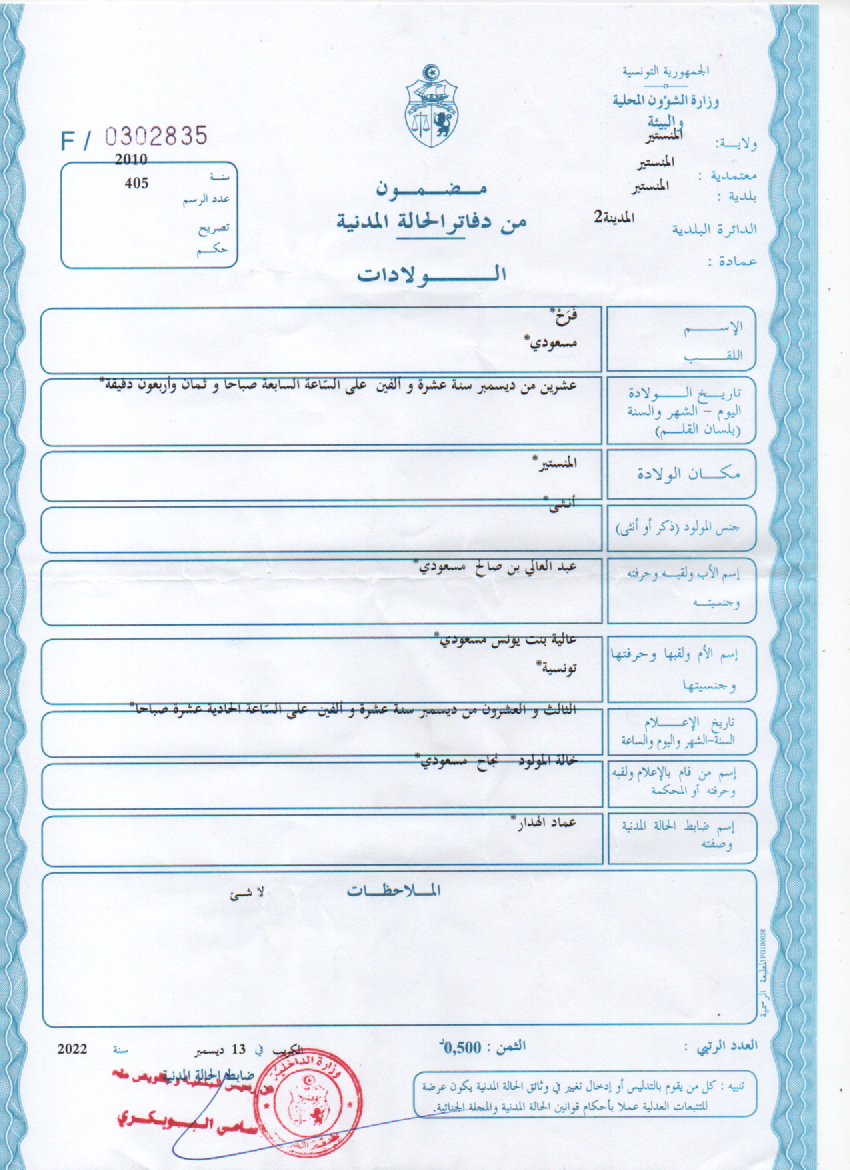 الجمهورية التونسية
وزارة الشؤون المحلية
والبيئة
ولايــة: المنستير
معتمدية : المنستير
بلدية : المنستير
الدائرة البلدية المدينة2
عمادة :
F / 0302835
سنة 2010
عدد الرسم 405
تصريح
حكــم
مـضــمــون
من دفاتر الحالة المدنية
الــــولادات
الإســـم فَرَحْ*
اللقـــب مسعودي*
تاريــخ الــــولادة عشرين من ديسمبر سنة عشرة و ألفين على السّاعة السابعة صباحا و ثمان وأربعون دقيقة*
اليوم – الشهر والسنة
(بلسان القلــم)
مكــان الولادة المنستير*
جنس المولود (ذكر أو أنثى) أنثى*
إسم الأب ولقبــه وحرفته عبد العالي بن صالح مسعودي*
وجنسيتــه
إسم الأم ولقبها وحرفتها عالية بنت يونس مسعودي*
وجنسيتها تونسية*
تاريخ الإعــــلام الثالث و العشرون من ديسمبر سنة عشرة و ألفين على السّاعة الحادية عشرة صباحا*
السنة–الشهر واليوم والساعة
إسم من قام بالإعلام ولقبه خالة المولود نجاح مسعودي*
وحرفته أو المحكمة
إسم ضابط الحالة المدنية عماد الهدار*
وصفته
المـلاحظــات
لا شئ
المطبعة الرسمية
العدد الرتبي :
الثمن : 0,500د
الكريب في 13 ديسمبر سنة 2022
ضابط الحالة المدنية
تنبيه : كل من يقوم بالتدليس أو إدخال تغيير في وثائق الحالة المدنية يكون عرضة
للتتبعات العدلية عملا بأحكام قوانين الحالة المدنية والمجلة الجنائية.
وزارة الداخلية
سامي البوبكري